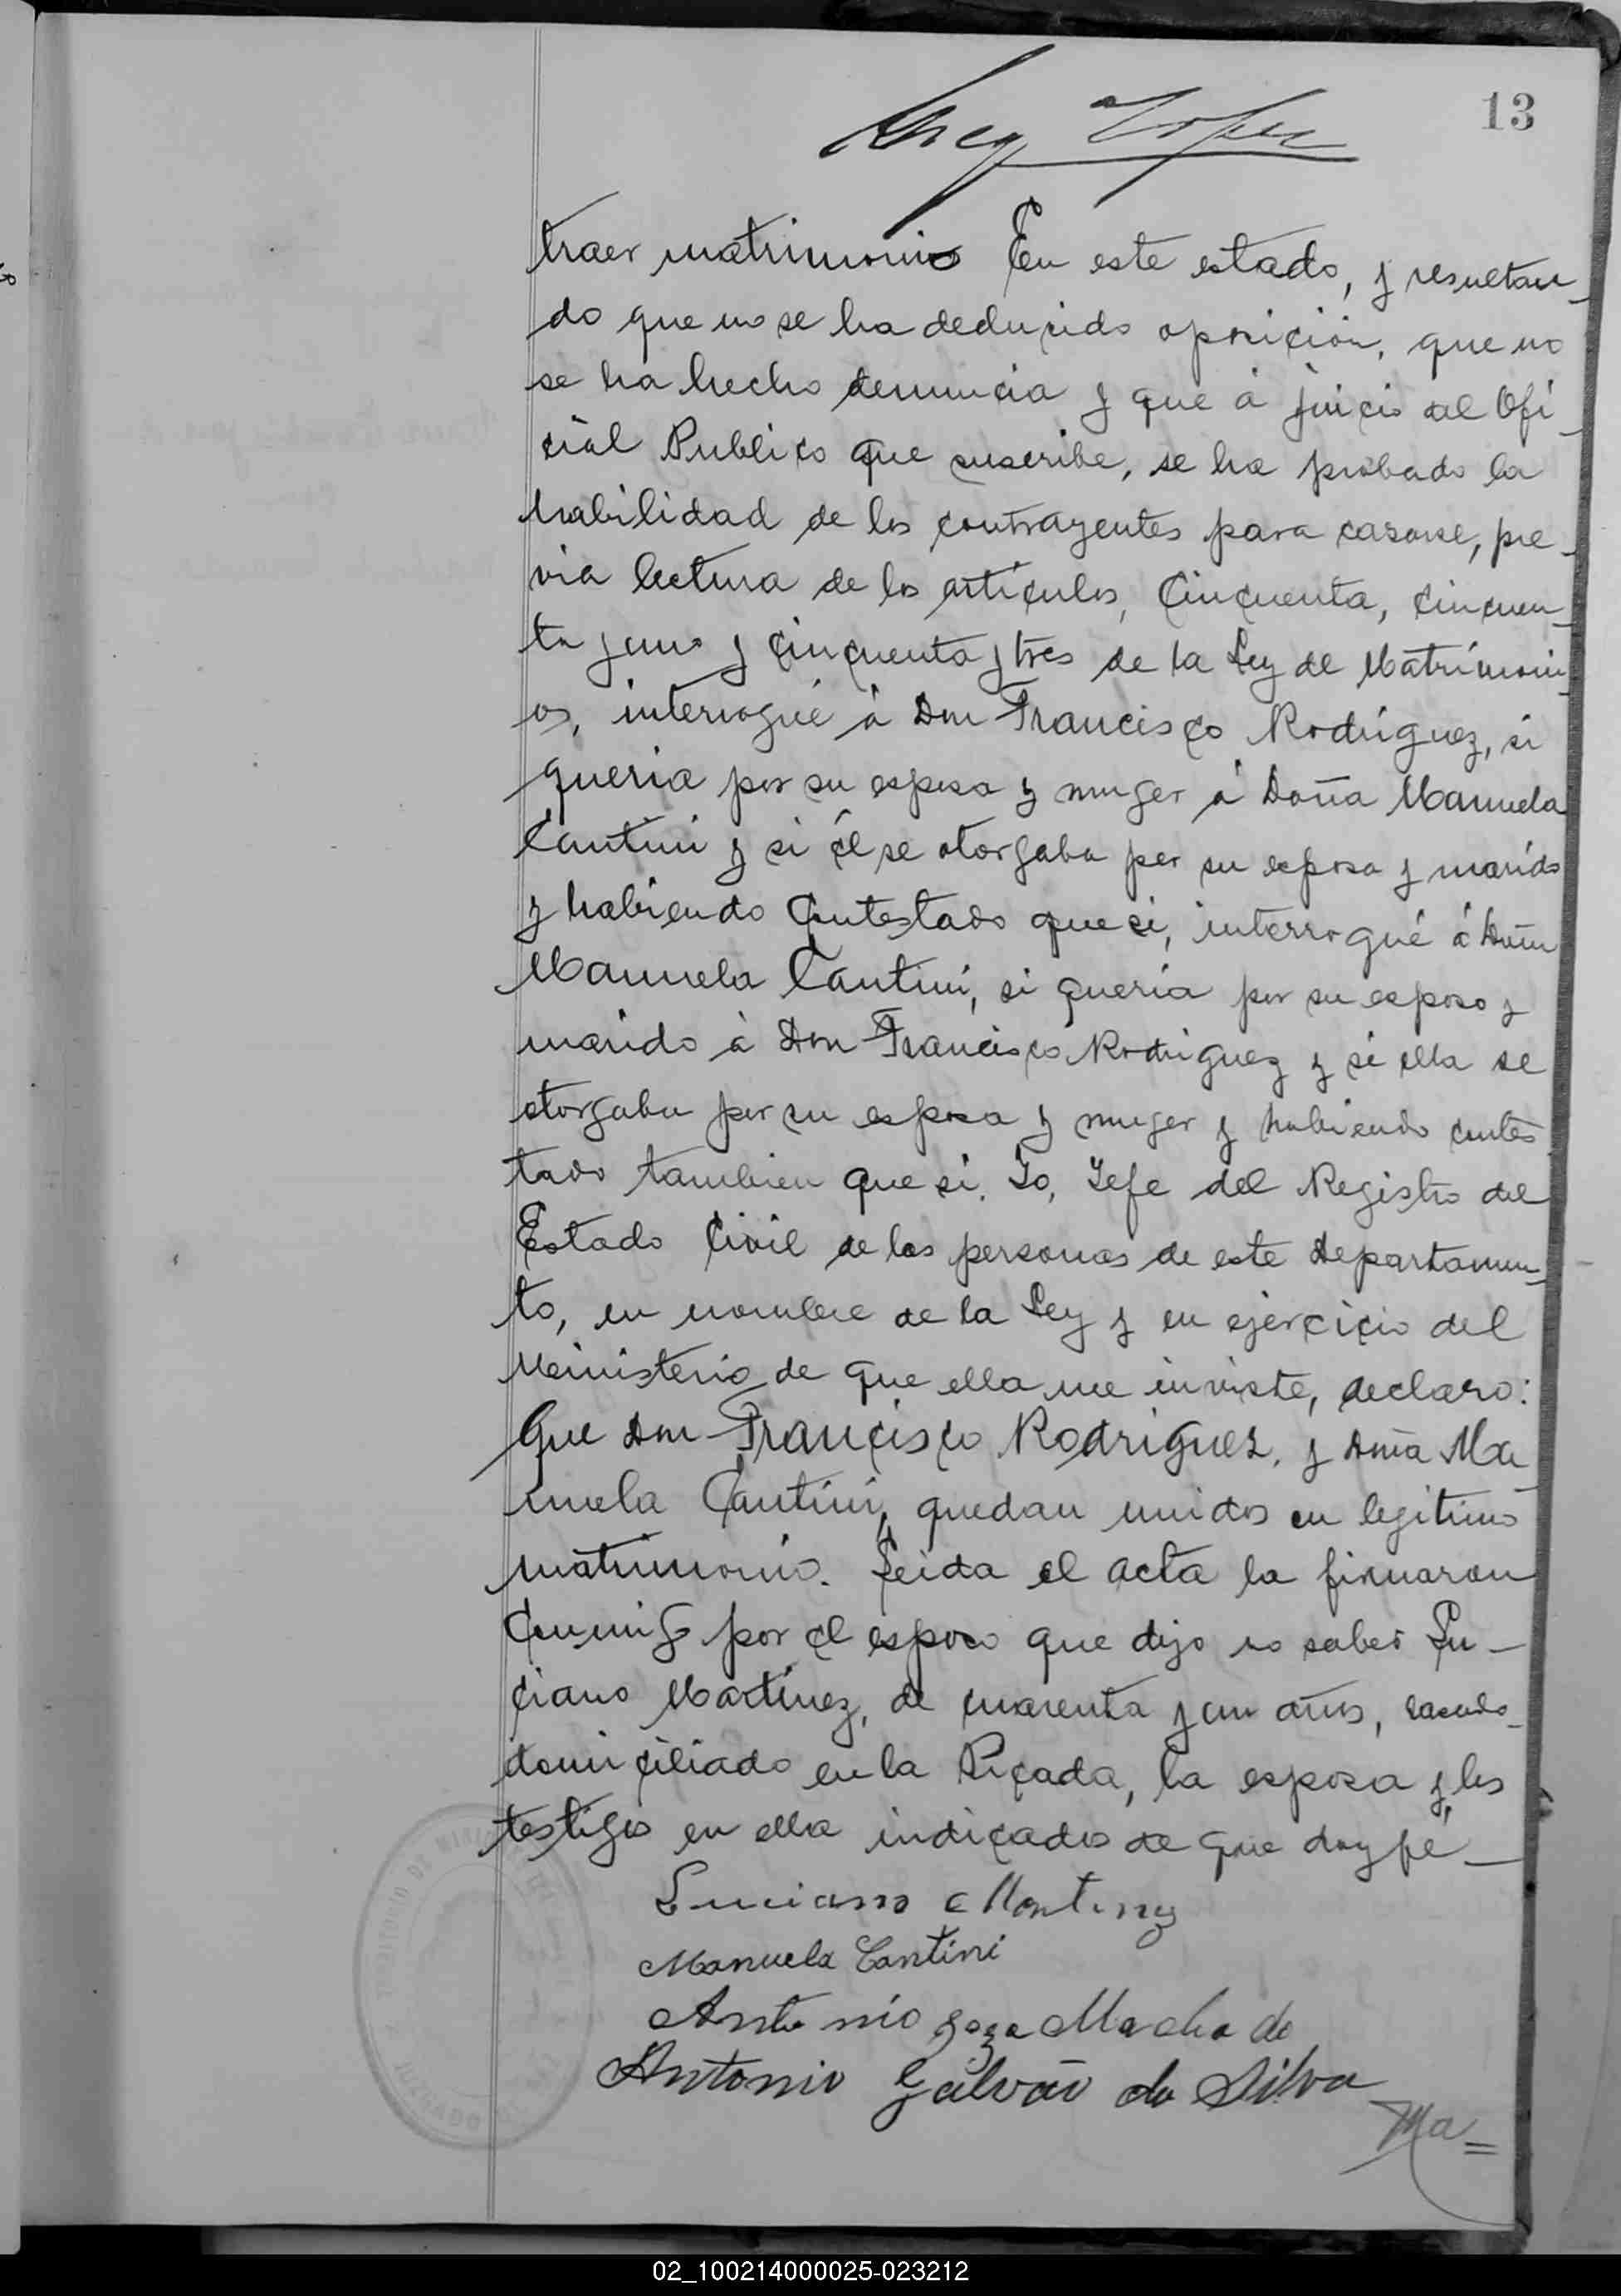 13
traer matrimonio En este estado, y resultan_
do que no se ha deducido oposición, que no
se ha hecho denuncia y que á juicio del Ofi_
cial Publico que suscribe, se ha probado la
habilidad de los contrayentes para casarse, pre_
via lectura de los artículos, Cincuenta, cincuen_
ta y uno y cincuenta y tres de la Ley de Matrimoni_
os, interrogué á Don Francisco Rodríguez, si
queria por su esposa y muger á Doña Manuela
Cantini y si él se otorgaba por su esposo y marido
y habiendo Contestado que si, interrogué á Doña
Manuela Cantini, si quería por su esposo y
marido á Don Francisco Rodriguez y si ella se
otorgaba por su esposa y muger y habiendo contes
tado tambien que si. Yo, Jefe del Registro del
Estado Civil de las personas de este Departamen_
to, en nombre de la Ley y en ejercicio del
Ministerio de que ella me inviste, declaro:
Que Don Francisco Rodriguez, y Doña Ma
nuela Cantini, quedan unidos en legitimo
matrimonio. Leida el acta la firmaron
Conmigo por el esposo que dijo no saber Lu_
ciano Martínez, de cuarenta y un años, casado_
domiciliado en la Picada, la esposa y los
testigos en ella indicados de que doy fé_
Luciano Martinez
Manuela Cantini
Antonio Machado
Antonio Galvão da Silva
Ma=
TERRITORIO DE
JUZGADO
02_100214000025-023212